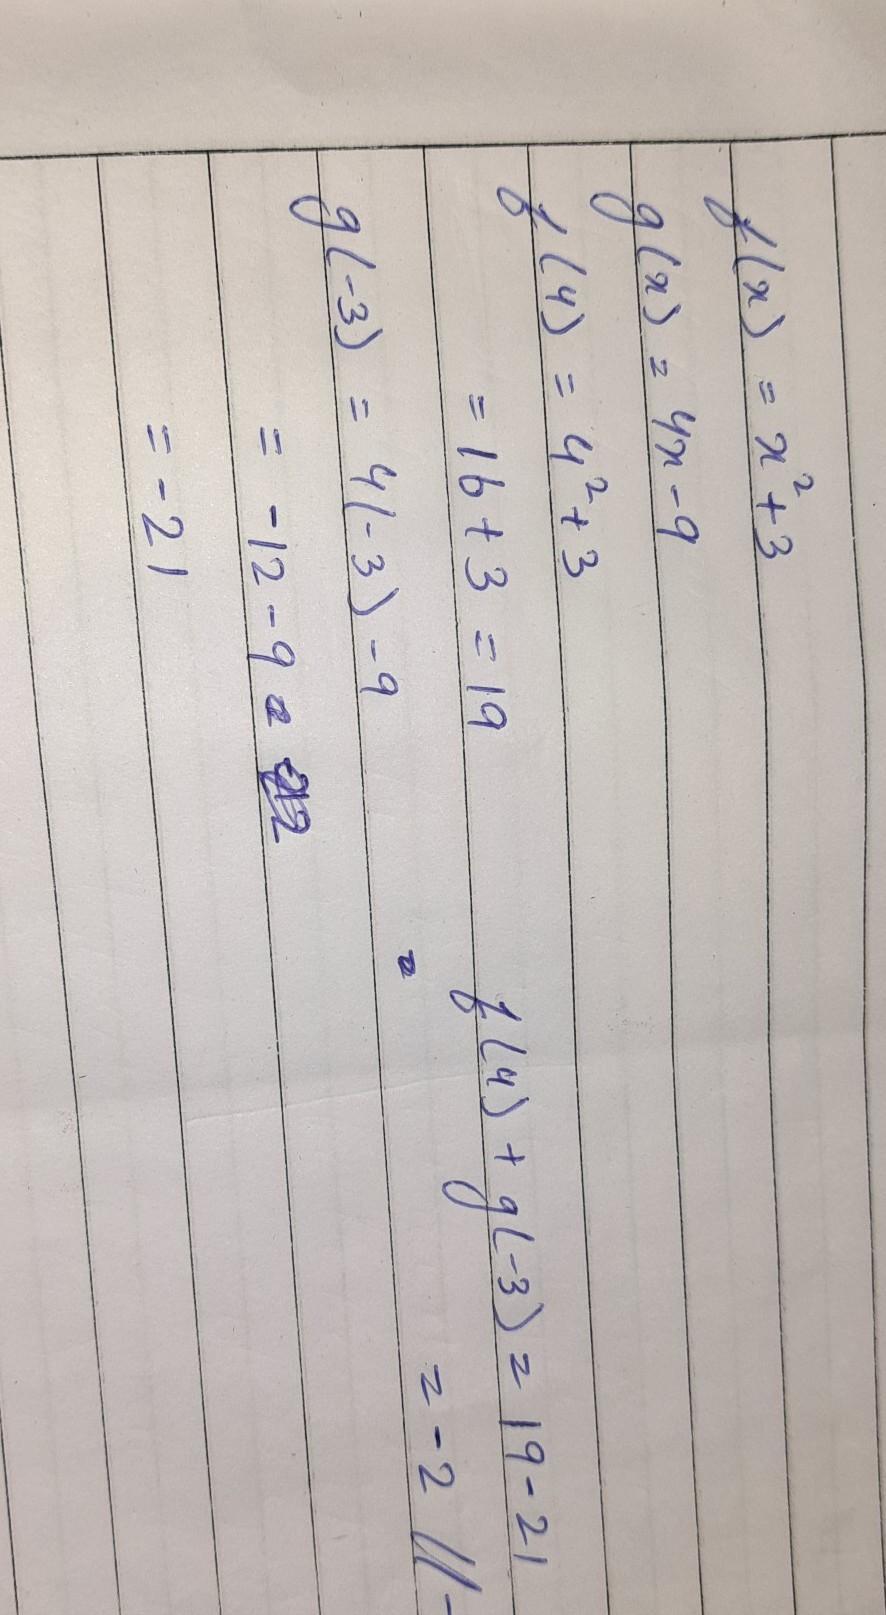 f(x) = x²+3
g(x) = 4x-9
f(4) = 4²+3
= 16+3 = 19
g(-3) = 4(-3)-9
= -12-9 =
= -21
f(4) + g(-3) = 19-21
= -2 //